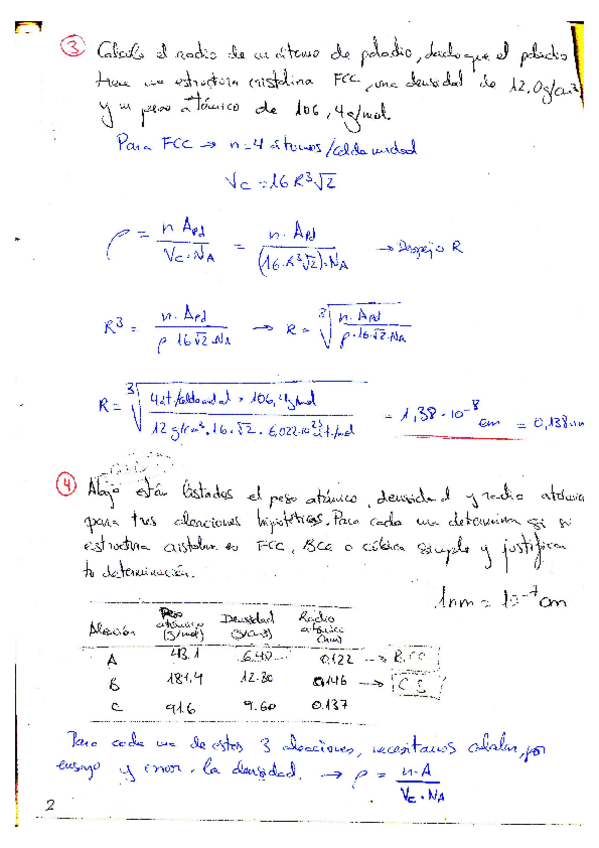 ③ Calcule el radio de un átomo de paladio, dado que el paladio
tiene una estructura cristalina FCC, una densidad de 12,0g/cm³
y un peso atómico de 106,4g/mol.
Para FCC → n=4 átomos/celda unidad
Vc = 16R³√2
ρ = n·APd / Vc·NA = n·APd / (16·R³√2)·NA → Despejo R
R³ = n·APd / ρ 16√2·NA → R = ∛(n·APd / ρ·16·√2·NA)
R = ∛(4at/celda unidad · 106,4g/mol / 12g/cm³·16·√2·6,022·10²³at/mol) = 1,38·10⁻⁸ cm = 0,138 nm
④ Abajo están listados el peso atómico, densidad y radio atómico
para tres aleaciones hipotéticas. Para cada una determina si su
estructura cristalina es FCC, BCC o cúbica simple y justifica
tu determinación.
1nm = 10⁻⁷ cm
Aleación Peso atómico (g/mol) Densidad (g/cm3) Radio atómico (nm)
A 43.1 6.40 0.122 → BCC
B 184.4 12.30 0.146 → CS
C 91.6 9.60 0.137
Para cada una de estas 3 aleaciones, necesitamos calcular, por
ensayo y error, la densidad. → ρ = n·A / Vc·NA
2